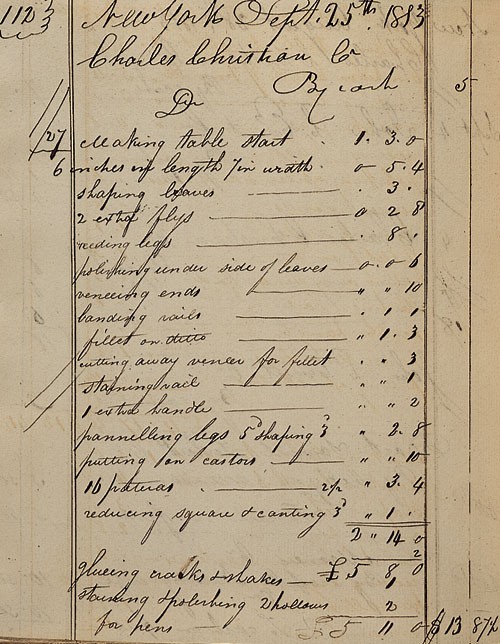 112/3 New York Sept. 25th. 1813
Charles Christian Cr
By cash 5
Dr
127 Making table start 1. 3. 0
6 inches in length 7 in wrath. 0 5. 4
shaping leaves . 3.
2 extra flys 0 2 8
reeding legs . 8.
polishing under side of leaves 0. 0 6
veneeing ends " " 10
banding rails . 1 1
fillet on ditto " 1. 3
cutting away veneer for fillet . " 3
staining rail " " 1
1 extra handle " " 2
pannelling legs 5d shaping 3d " 2. 8
putting on castors " " 10
16 pateras 2½ " 3. 4
reducing square & canting 3d " 1.
2 " 14 0
2
glueing cracks & shakes £ 5 8 0
1
staining & polishing 2 hollows 2
for pens £ 5 11 0 $ 13 87½